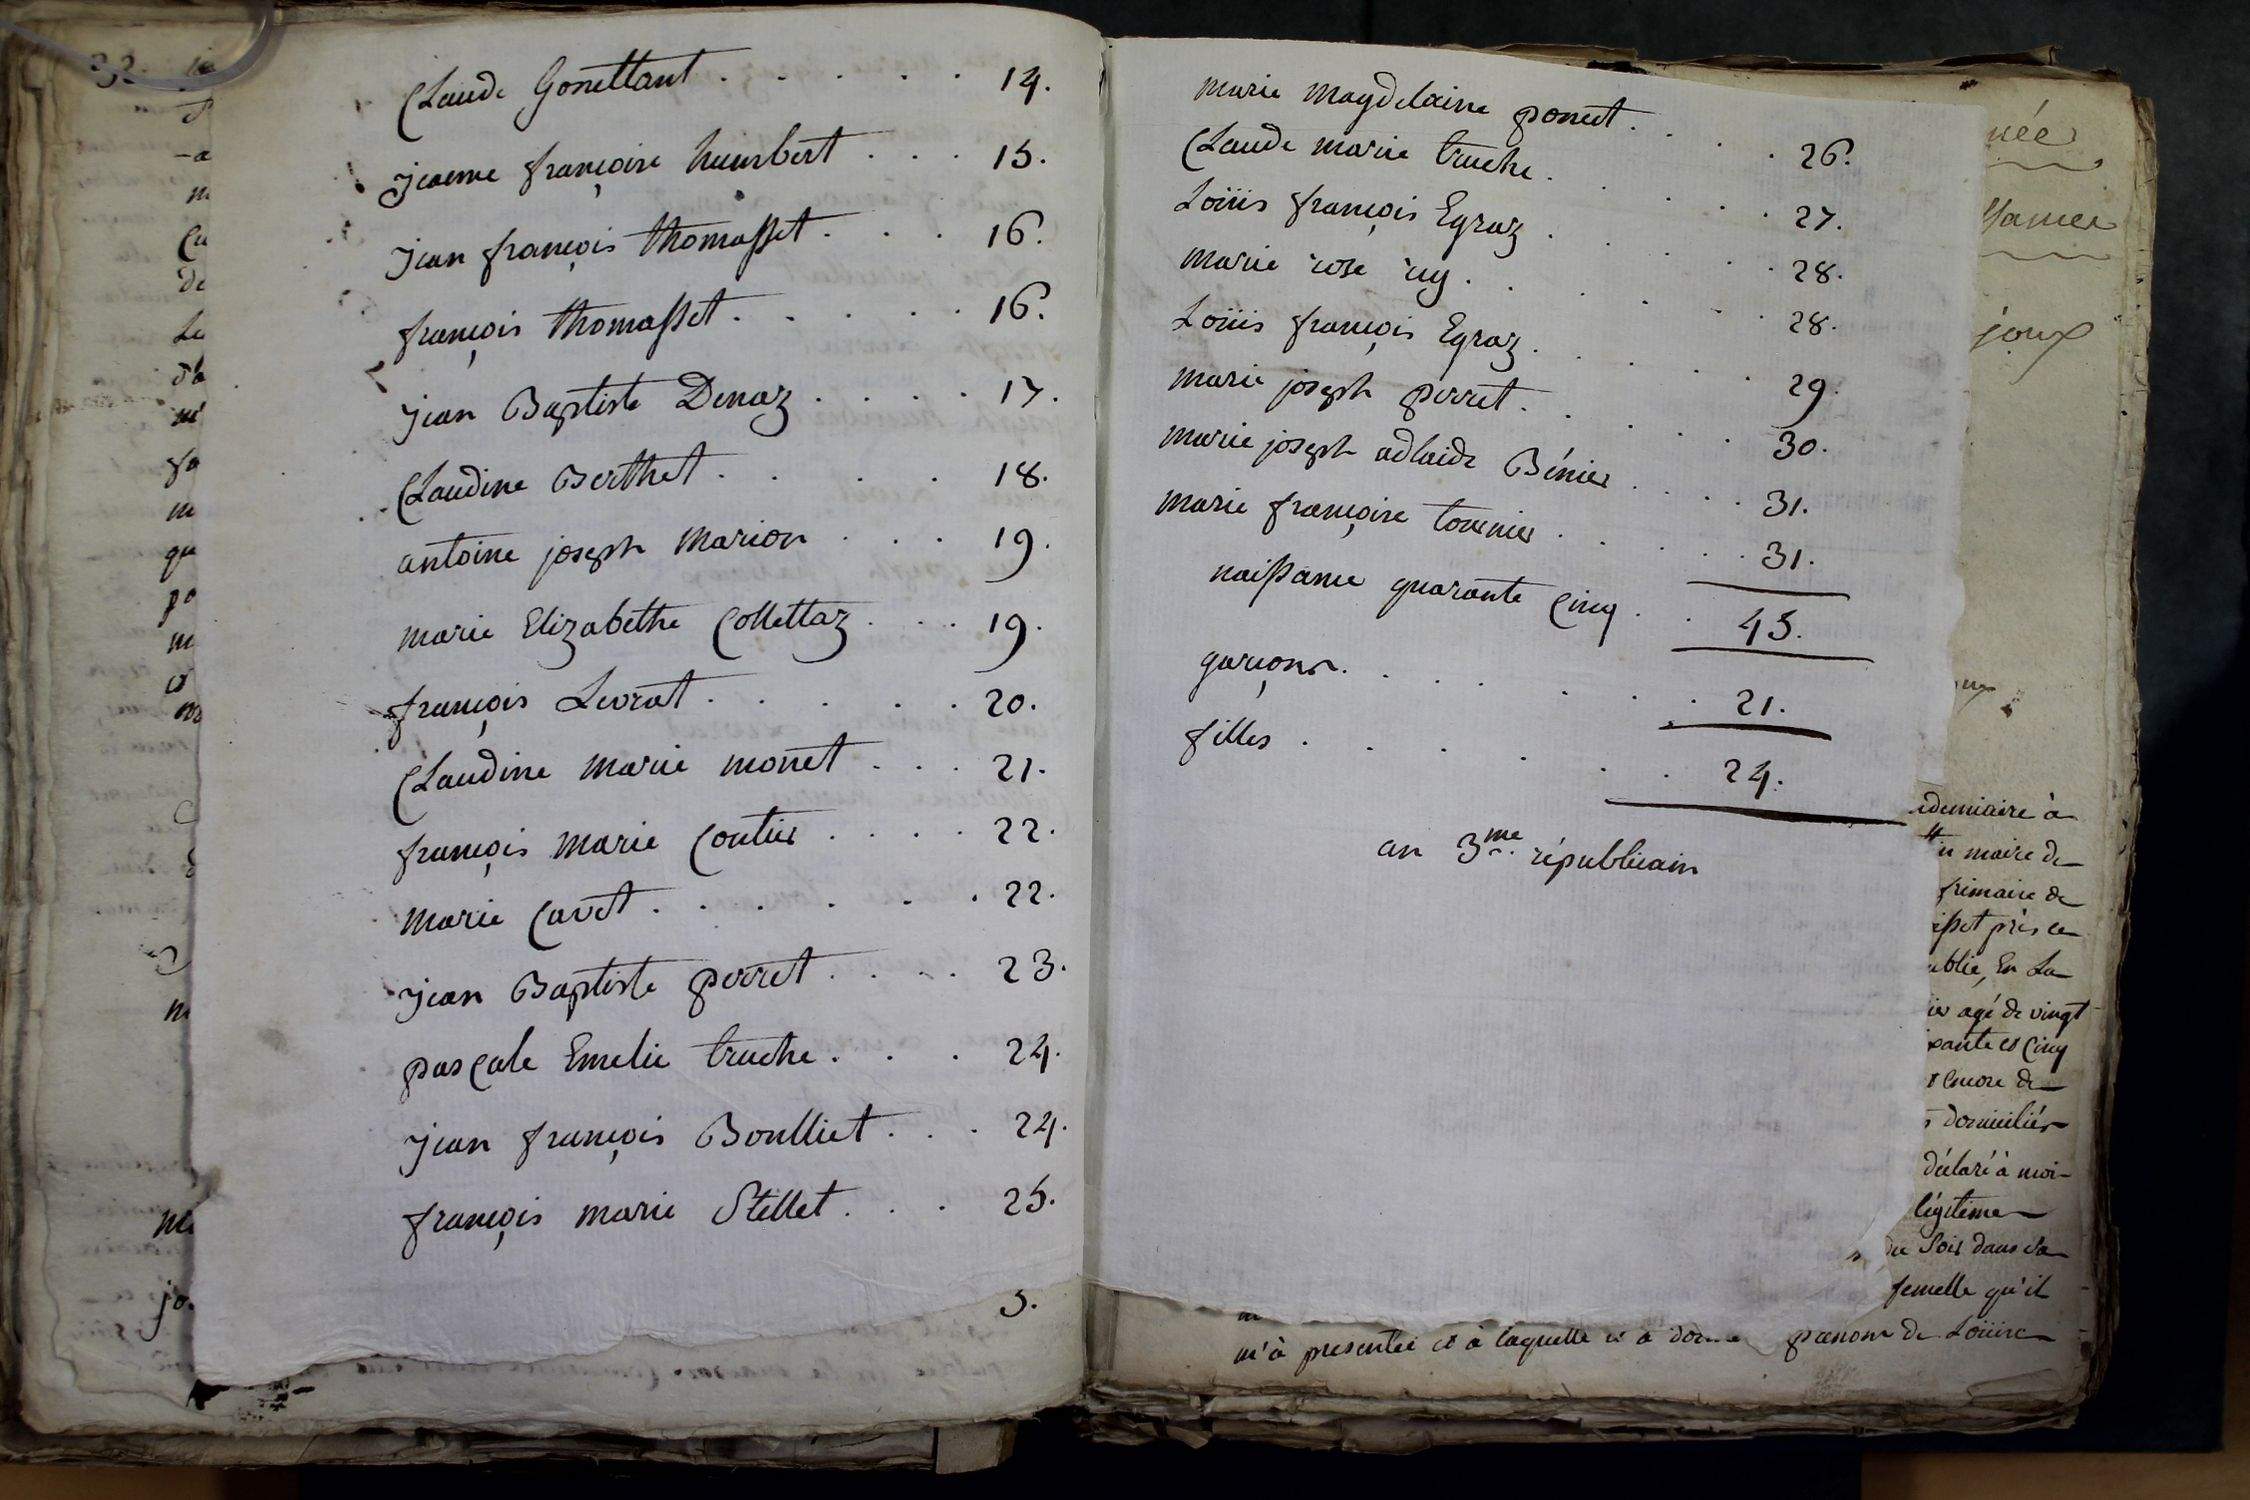 32.
Claude Gonettant . . . . . 14.
jeanne françoise humbert . . . 15.
jean françois thomasset . . . 16.
françois thomasset . . . . . 16.
jean Baptiste Denaz . . . . 17.
Claudine Berthet . . . . 18.
antoine joseph Marion . . . 19.
marie Elizabethe Collettaz . . . 19.
françois Levrat . . . . . 20.
Claudine marie monet . . . 21.
françois marie Coutier . . . . 22.
marie Cavet . . . . . . . 22.
jean Baptiste perret . . . . 23.
pascale Emelie truche . . . 24.
jean françois Boulliet . . . 24.
françois marie Stellet . . . 25.
3.
marie magdelaine poncet . . . . 26.
Claude marie truche . . . . . 27.
Loüis françois Egraz . . . . . 28.
marie rose rey . . . . . 28.
Loüis françois Egraz . . . . 29.
marie joseph perret . . . . . 30.
marie joseph adlaide Bénier . . . . 31.
marie françoise tovenier . . . . . 31.
naissance quarante Cinq . . 45.
garçons . . . . . . . 21.
filles . . . . . . 24.
an 3me républicain
née
joux
demiaire à
maire de
frimaire de
près ce
ublie, En La
agé de vingt
xante et Cinq
encore de
domiciliés
déclaré à moi
légitime
du Soir dans sa
femelle qu'il
m'à presentée et à laquelle il a donné prenom de Loüise